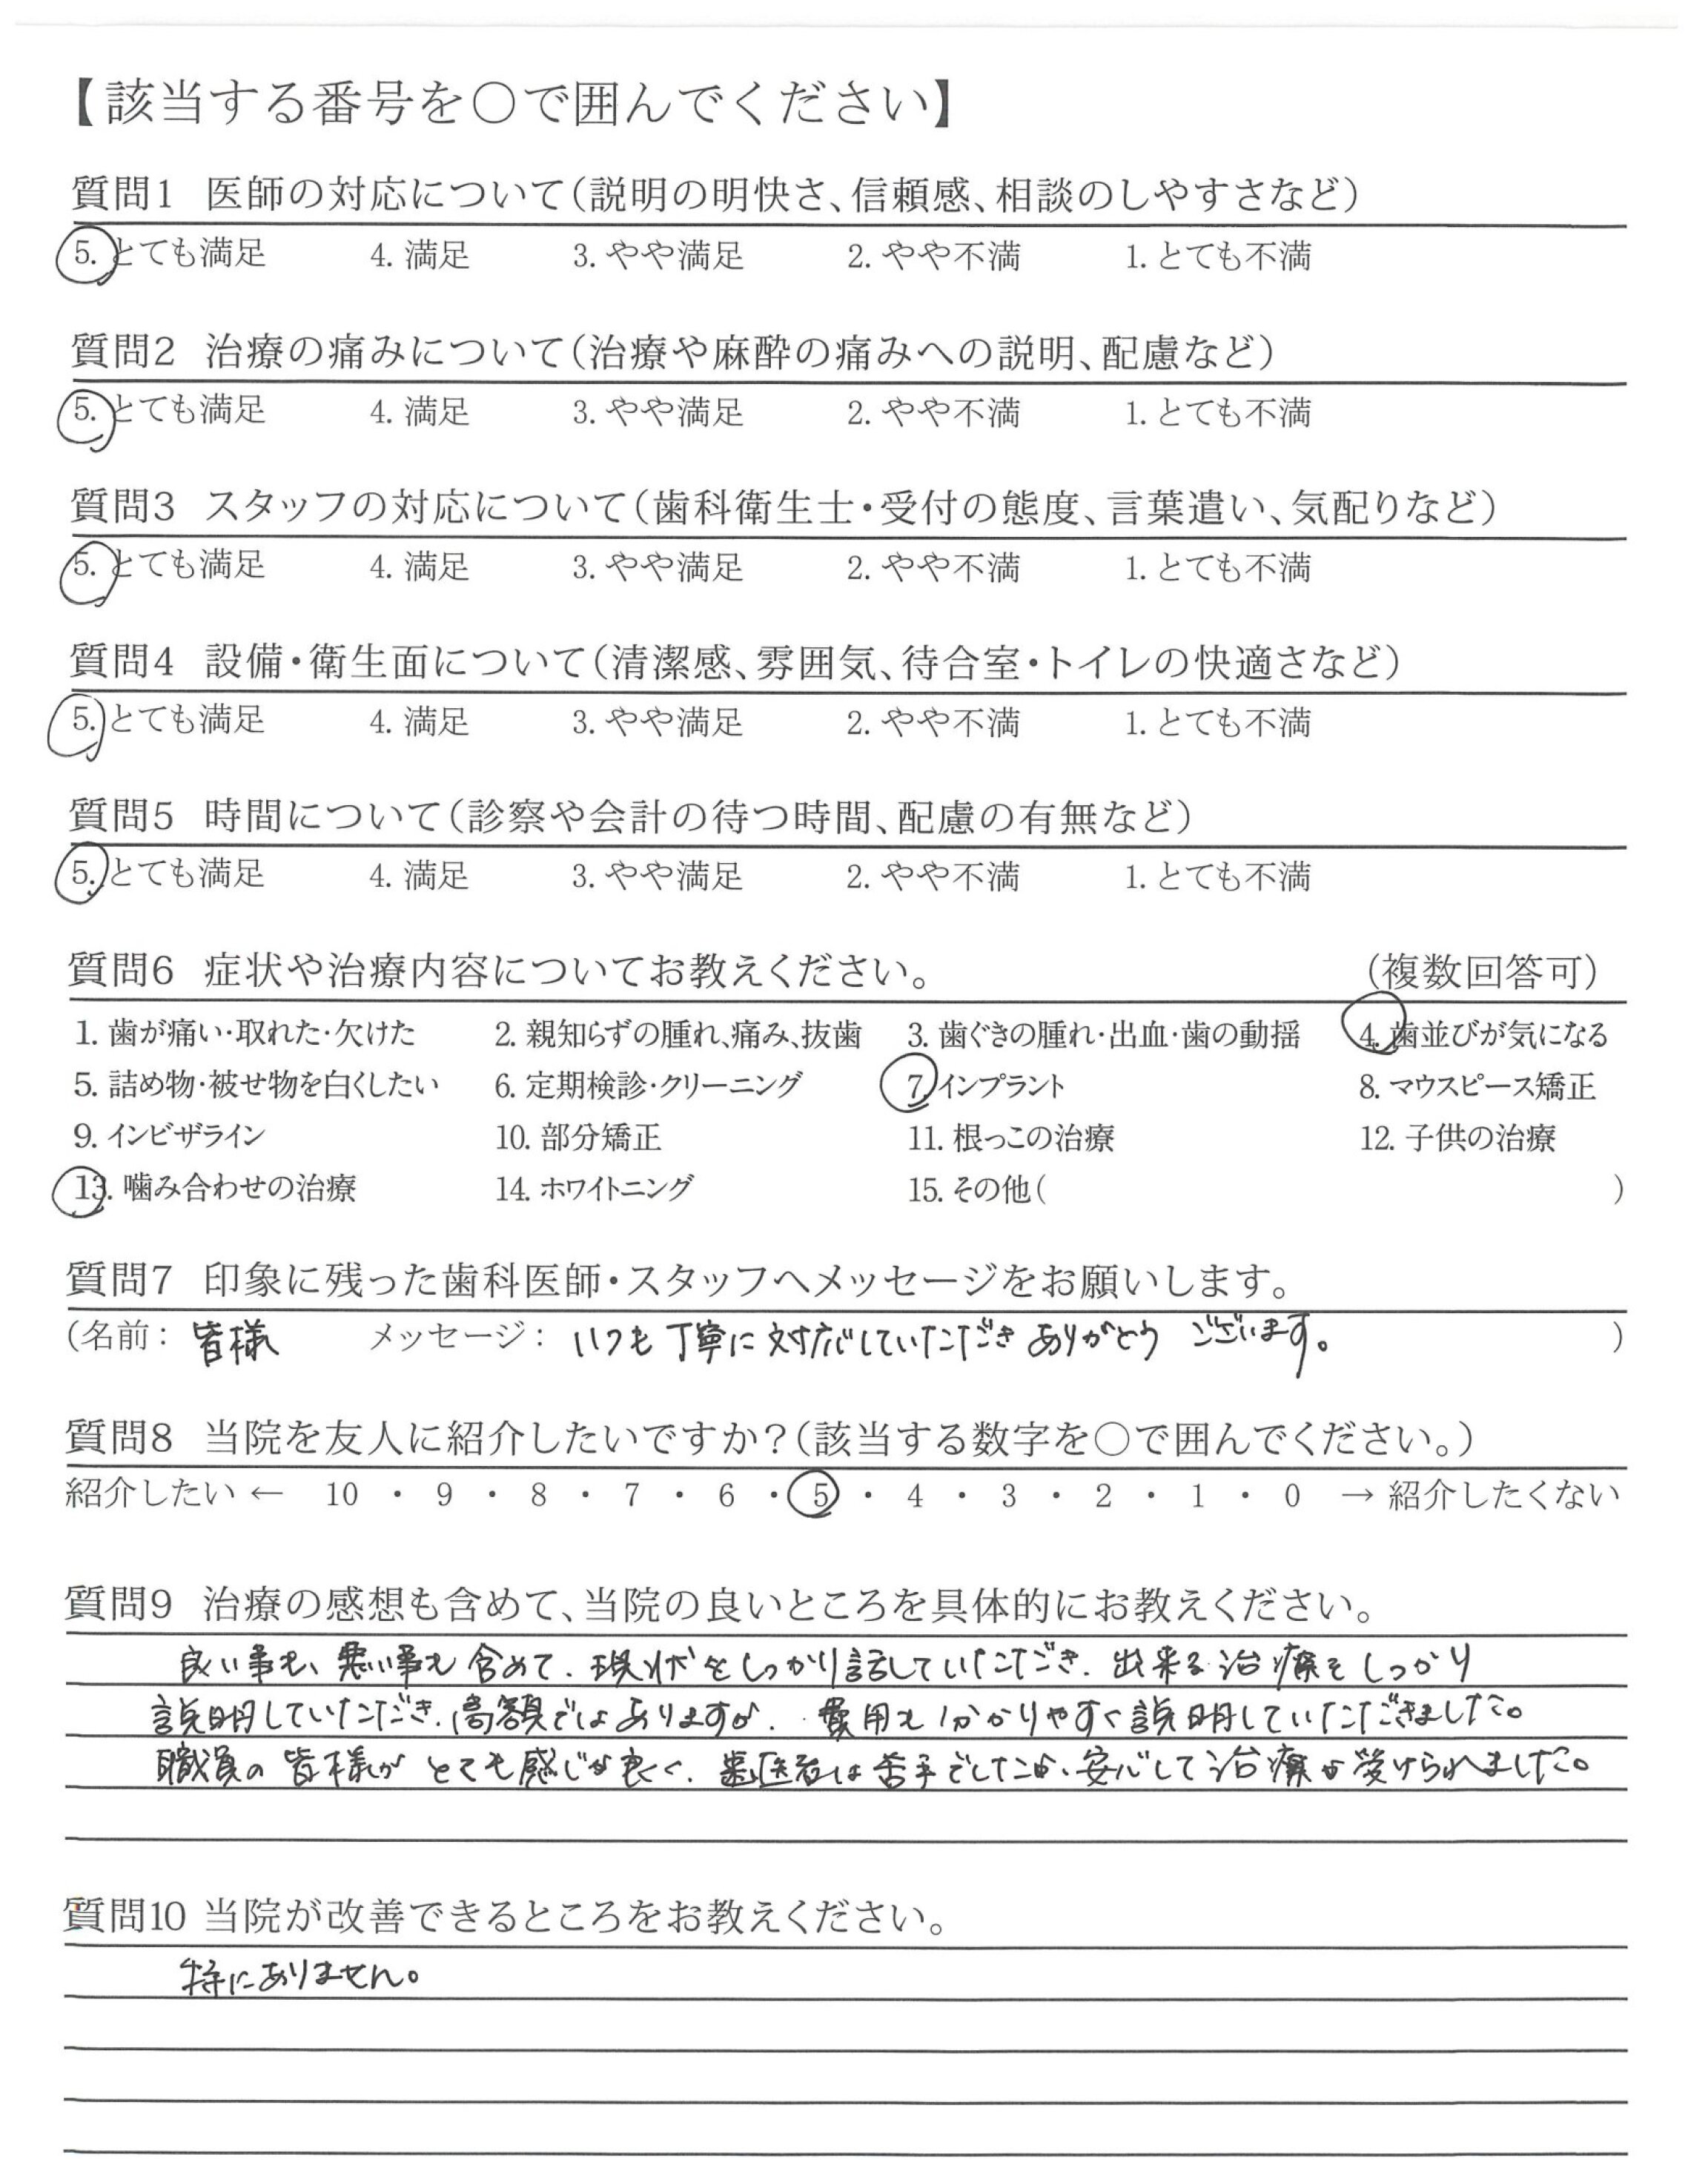 【該当する番号を○で囲んでください】
質問1 医師の対応について(説明の明快さ、信頼感、相談のしやすさなど)
5. とても満足 4. 満足 3. やや満足 2. やや不満 1. とても不満
質問2 治療の痛みについて(治療や麻酔の痛みへの説明、配慮など)
5. とても満足 4. 満足 3. やや満足 2. やや不満 1. とても不満
質問3 スタッフの対応について(歯科衛生士・受付の態度、言葉遣い、気配りなど)
5. とても満足 4. 満足 3. やや満足 2. やや不満 1. とても不満
質問4 設備・衛生面について(清潔感、雰囲気、待合室・トイレの快適さなど)
5. とても満足 4. 満足 3. やや満足 2. やや不満 1. とても不満
質問5 時間について(診察や会計の待つ時間、配慮の有無など)
5. とても満足 4. 満足 3. やや満足 2. やや不満 1. とても不満
質問6 症状や治療内容についてお教えください。 (複数回答可)
1. 歯が痛い・取れた・欠けた 2. 親知らずの腫れ、痛み、抜歯 3. 歯ぐきの腫れ・出血・歯の動揺 4. 歯並びが気になる
5. 詰め物・被せ物を白くしたい 6. 定期検診・クリーニング 7. インプラント 8. マウスピース矯正
9. インビザライン 10. 部分矯正 11. 根っこの治療 12. 子供の治療
13. 噛み合わせの治療 14. ホワイトニング 15. その他( )
質問7 印象に残った歯科医師・スタッフへメッセージをお願いします。
(名前: 皆様 メッセージ: いつも丁寧に対応していただきありがとうございます。 )
質問8 当院を友人に紹介したいですか?(該当する数字を○で囲んでください。)
紹介したい ← 10 ・ 9 ・ 8 ・ 7 ・ 6 ・ 5 ・ 4 ・ 3 ・ 2 ・ 1 ・ 0 → 紹介したくない
質問9 治療の感想も含めて、当院の良いところを具体的にお教えください。
良い事も、悪い事も含めて、現状をしっかり話していただき、出来る治療をしっかり
説明していただき、高額ではありますが、費用も分かりやすく説明していただきました。
職員の皆様がとても感じが良く、歯医者は苦手でしたが、安心して治療が受けられました。
質問10 当院が改善できるところをお教えください。
特にありません。